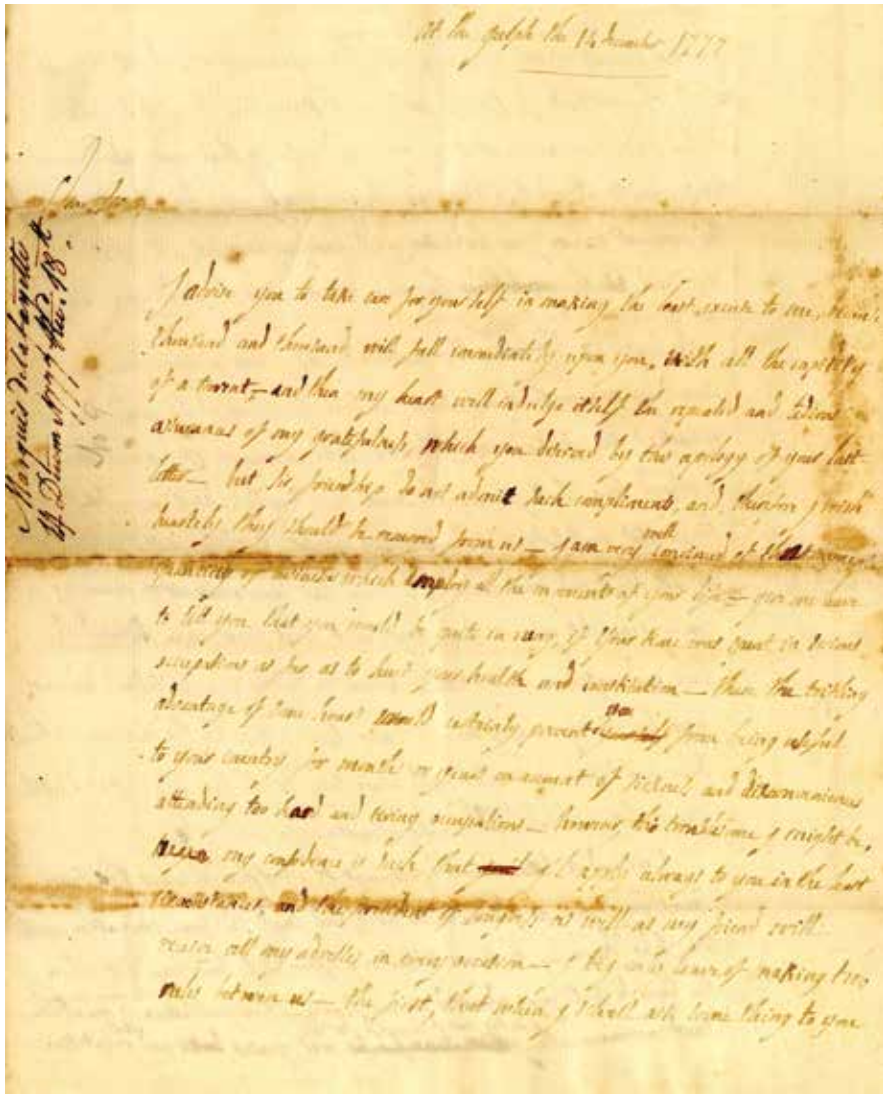 At the gulph the 14 december 1777
Marquis de la fayette
14 Decem 1777 18th
No 9
I advise you to take care for yourself in making the least excuse to me,
thousand and thousand will fall immediately upon you, with all the rapidity
of a torrent, and then my heart will indulge itself the repeated and tedious
assurances of my gratefulness, which you deserved by the apology of your last
letter – but Sir, friendship do not admit such compliments, and, therefore j wish
heartily they should be removed from us – j am very well convinced of that
quantity of business which employ all the moments of your life – give me leave
to tell you that you would be quite in wrong, if your time was spent in serious
occupations as far as to hurt your health and constitution – then the trifling
advantage of some hours would certainly prevent you from being useful
to your country for month or years on account of sickness and disconveniences
attending too hard and serious occupations – however troublesome j might be,
my confidence is such that j 'll apply always to you in the least
circumstances, and the president of Congress as well as my friend will
receive all my in every occasion – j beg only leave of making two
rules between us – the first, that when j shall ask some thing to you